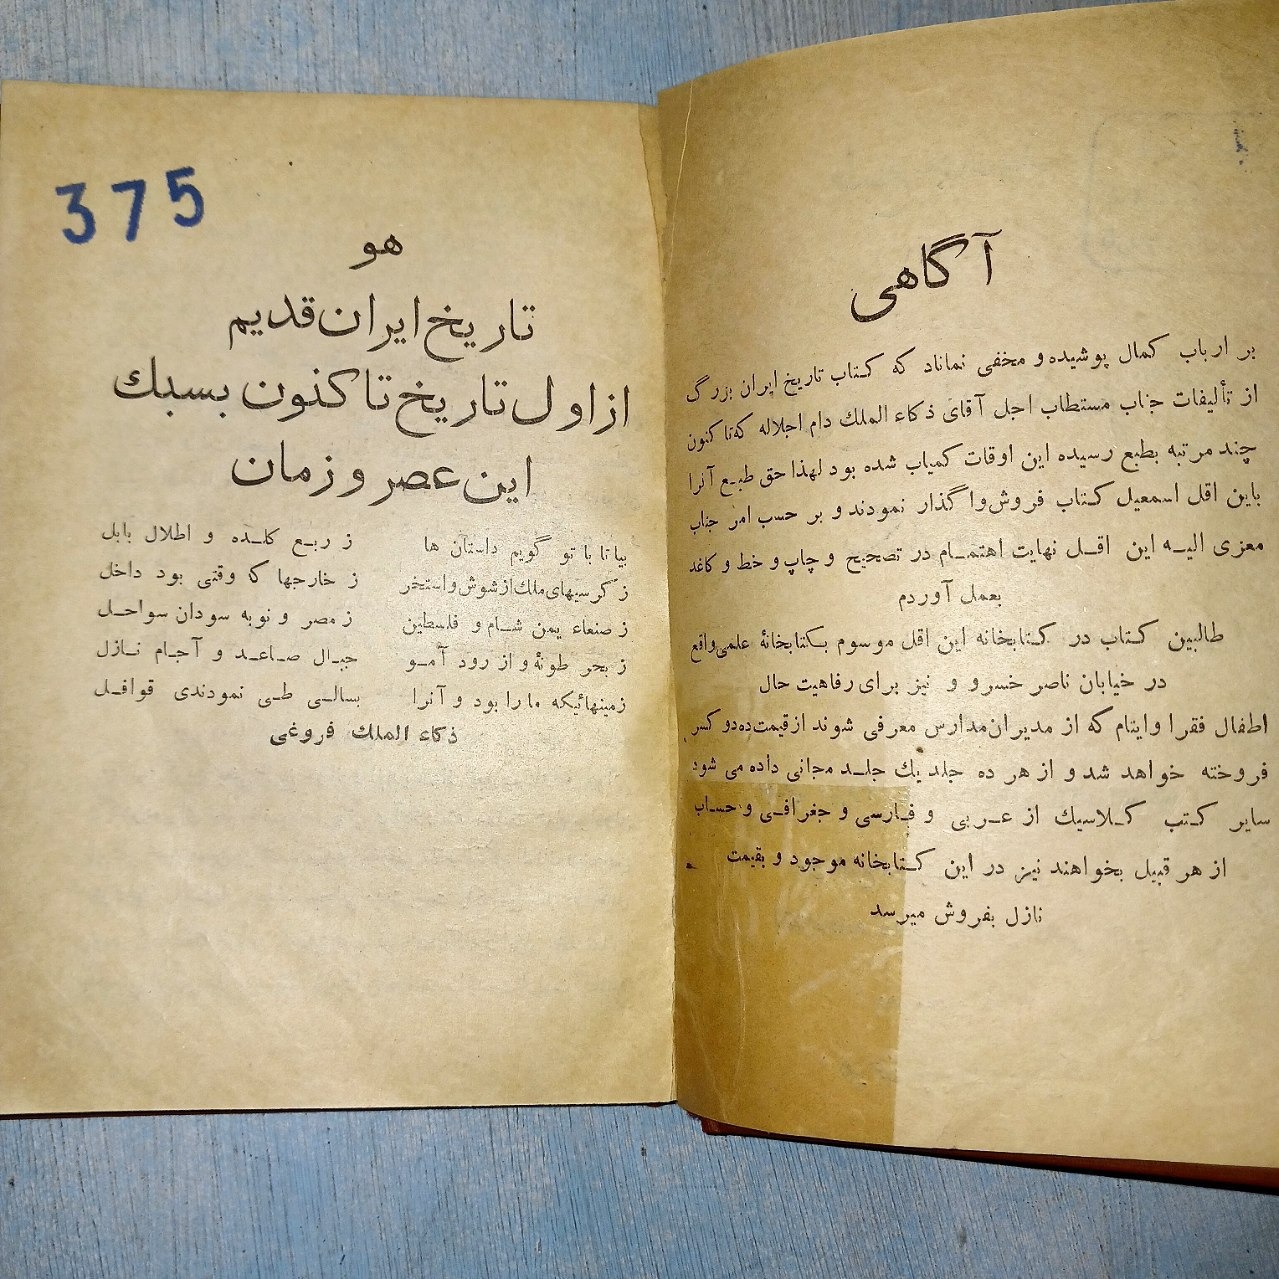 آگاهی
بر ارباب كمال پوشیده و مخفی نماناد كه كتاب تاریخ ایران بزرگ
از تألیفات جناب مستطاب اجل آقای ذكاء الملك دام اجلاله كه تا كنون
چند مرتبه بطبع رسیده این اوقات كمیاب شده بود لهذا حق طبع آنرا
باین اقل اسمعیل كتاب فروش واگذار نمودند و بر حسب امر جناب
معزی الیه این اقل نهایت اهتمام در تصحیح و چاپ و خط و كاغذ
بعمل آوردم
طالبین كتاب در كتابخانه این اقل موسوم بكتابخانهٔ علمی واقع
در خیابان ناصر خسرو و نیز برای رفاهیت حال
اطفال فقرا و ایتام كه از مدیران مدارس معرفی شوند از قیمت ده دو كسر
فروخته خواهد شد و از هر ده جلد یك جلد مجانی داده می شود
سایر كتب كلاسیك از عربی و فارسی و جغرافی و حساب
از هر قبیل بخواهند نیز در این كتابخانه موجود و بقیمت
نازل بفروش میرسد
375
هو
تاریخ ایران قدیم
از اول تاریخ تا كنون بسبك
این عصر و زمان
بیا تا با تو گویم داستان ها ز ربع كلده و اطلال بابل
ز كرسیهای ملك از شوش و استخر ز خارجها كه وقتی بود داخل
ز صنعاء یمن شام و فلسطین ز مصر و نوبه سودان سواحل
ز بحر طونهٔ و از رود آمو جبال صاعد و آجام نازل
زمینهائیكه ما را بود و آنرا بسالی طی نمودندی قوافل
ذكاء الملك فروغی